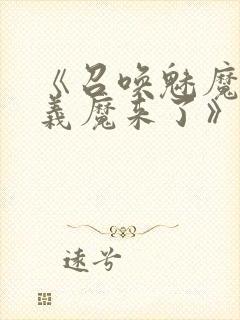 《召唤魅魔
義魔来了》
遠兮